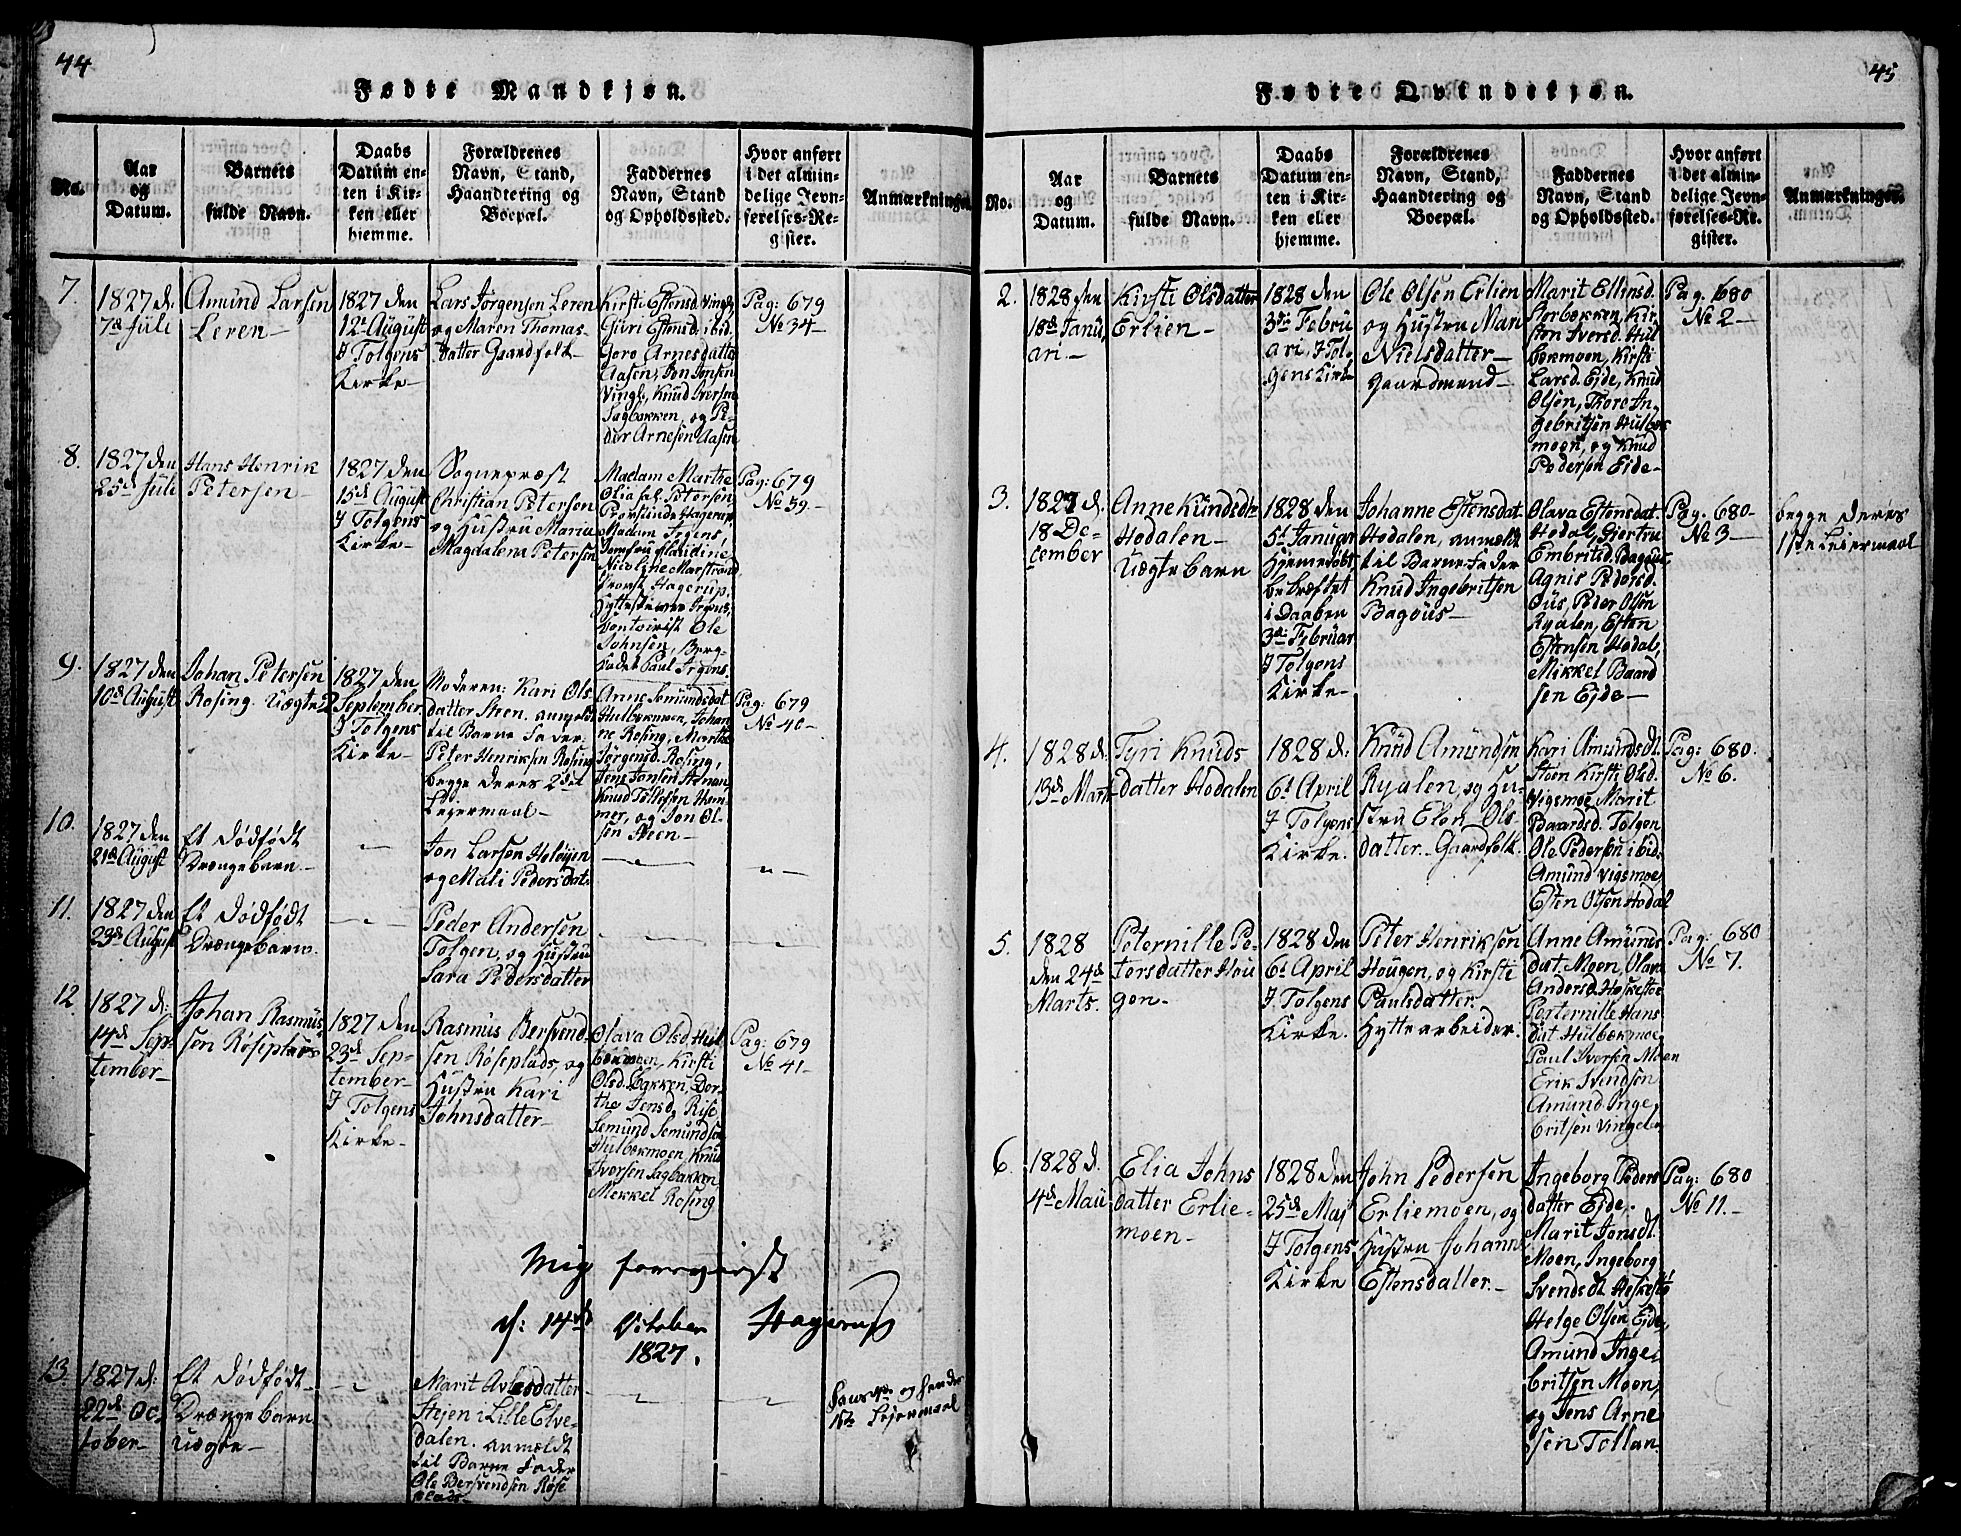 44
Fødte Mandkjøn.
No.
Aar
og
Datum.
Barnets
fulde Navn.
Daabs
Datum en-
ten i Kir-
ken eller
hjemme.
Forældrenes
Navn, Stand,
Haandtering og
Boepæl.
Faddernes
Navn, Stand
og Opholdssted.
Hvor anført
i det almin-
delige Jevn-
førelses-Re-
gister.
Anmærkninger.
7.
1827 d.
7d Juli
Amund Larsen
Leren
1827 den
12t August
I Tolgens
Kirke
Lars Jørgensen Leren
og Maren Thomas-
datter Gaardfolk
Kirsti Estensd. Vingel,
Guri Estensd. ibid.
Goro Arnesdatter
Aasen, Jon Jonsen
Vingl., Knud Iversen
Sagbakken, og Pe-
der Arnesen Aasen
Pag: 679
No 34
8.
1827 den
25d Juli
Hans Henrik
Petersen
1827 den
15d August
I Tolgens
Kirke
Sognepræst
Christian Petersen
og Hustru Maria
Magdalena Petersen
Madam Marthe
Olia Petersen,
Hagerup,
Madam Irgens,
Jomfru Claudine
Nicoline Marstrand
Provst Hagerup,
Irgens,
Ole
Johnsen, Berg-
kadet Paul Irgens.
Pag: 679
No 39
9.
1827 den
10d August
Johan Petersen
Rosing. Uægte
1827 den
2 September
I Tolgens
Kirke
Moderen: Kari Ols-
datter Steen. anmeldt
til Barne Fader
Peter Henriksen Rosing
begge deres 2det
Leiermaal
Anne Semundsdat
Hulbækmoen, Johan-
ne Rosing, Marthe
Jørgensd. Rosing,
Jens Jonsen
Knud Tollefsen Ham-
mer, og Jon Ol-
sen Neen
Pag: 679
No 40
10.
1827 den
21d August
Et dødfødt
Drængebarn
Jon Larsen Holøyen
og Mali Pedersdat
11.
1827 den
23d August
Et dødfødt
Drængebarn.
Peder Andersen
Tolgen, og Hustru
Sara Pedersdatter
12.
1827 d:
14d Sep-
tember
Johan Rasmus-
sen Røseplads
1827 den
23d Sep-
tember
I Tolgens
Kirke
Rasmus Bersvend-
sen Røseplads, og
Hustru Kari
Johnsdatter
Olava Olsd. Hul-
bækmoen, Kirsti
Olsd. Bakken, Dor-
the Jensd. Rise
Semund Semundsen
Hulbækmoen, Knud
Iversen Sagbakken,
Mekkel Rosing
Pag: 679
No 41
Mig foreviist
d: 14de October
1827.
Hagerup
13.
1827 d:
22d Oc-
tober
Et dødfødt
Drængebarn
uægte
Marit
Stejen i Lille Elve-
dalen. anmeldt
til Barne Fader
Ole Bersvendsen Røse
plads
hans og hendes
1ste Lejermaal
45
Fødte Qvindekjøn.
No.
Aar
og
Datum.
Barnets
fulde Navn.
Daabs
Datum en-
ten i Kir-
ken eller
hjemme.
Forældrenes
Navn, Stand,
Haandtering og
Boepæl.
Faddernes
Navn, Stand
og Opholdssted.
Hvor anført
i det almin-
delige Jevn-
førelses-Re-
gister.
Anmærkninger.
2.
1828 den
18d Janu-
ari
Kirsti Olsdatter
Erlien
1828 den
3die Febru
ari, I Tol-
gens Kirke
Ole Olsen Erlien
og Hustru Mari
Nielsdatter
Gaardmænd
Marit Ellinsd.
Storbækken, Kir-
sten Iversd. Hul-
bækmoen, Kirsti
Larsd. Ejde, Knud
Olsen, Thore In-
gebritsen Hulbæk-
moen, og Knud
Pedersen Eide
Pag. 680
No 2
3.
1827 d.
18 De-
cember
Anne Knudsdtr
Hodalen
Uægte barn
1828 den
5t Januar
Hjemmedøbt
bekræftet
i Daaben
3die Februar
I Tolgens
Kirke
Johanne Estensdat.
Hodalen, anmeldt
til Barne Fader
Knud Ingebritsen
Bagøus
Olava Estensdat.
Hodal, Giertru
Embritsd. Bagøus
Agnis Pedersd.
Øus, Peder Olsen
Ryalen, Esten
Estensen Hodal,
Mikkel Baard
sen Ejde
Pag. 680
No 3
begge deres
1ste Leiermaal
4.
1828 d.
13d Marts
Tyri Knuds
datter Hodalen
1828 d:
6t April
I Tolgens
Kirke.
Knud Amundsen
Ryalen, og Hu-
stru Elen Ols
datter Gaardfolk
Kari Amundsdt.
Steen Kirsti Olsd.
Vigsmoe, Marit
Baardsd. Tolgen
Ole Pedersen ibid.
Amund Vigsmoe,
Esten Olsen Hodal
Pag: 680.
No 6.
5.
1828
den 24d
Marts.
Peternille Pe-
tersdatter Hou
gen
1828 den
6t April
I Tolgens
Kirke.
Peter Henriksen
Hougen, og Kirsti
Paulsdatter
Hyttearbeider.
Anne Amunds
dat. Moen, Olava
Andersd.
Perternille Hans
dat Hulbækmoe
Paul Iversen Moen
Erik Svendsen
Amund Inge-
britsen Vingelen
Pag: 680
No 7.
6.
1828 d.
4d Maii
Elia Johns
datter Erlie-
moen
1828 den
25d Maj
I Tolgens
Kirke
John Pedersen
Erliemoen, og
Hustru Johanne
Estensdatter.
Ingeborg Peders
datter Ejde,
Marit Jonsdt.
Moen, Ingeborg
Svendsdt
Helge Olsen Ejde,
Amund Inge-
britsen Moen,
og Jens Arne
sen Tollan
Pag: 680
No 11.